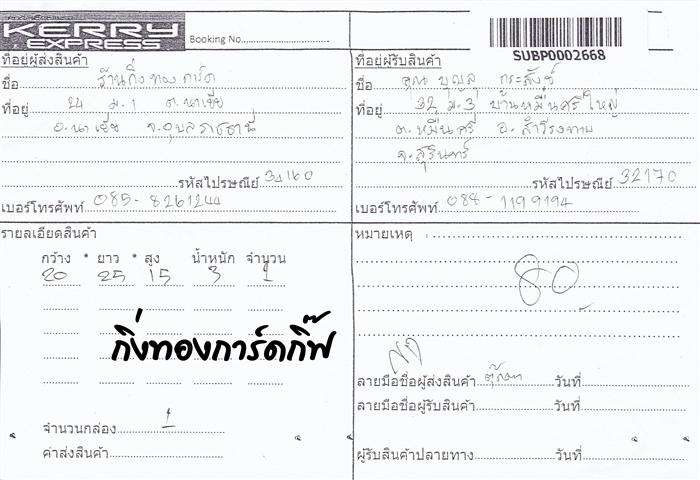 KERRY
EXPRESS
Booking No.
SUBP0002668
ที่อยู่ผู้ส่งสินค้า
ชื่อ ร้านกิ่งทองการ์ด
ที่อยู่ 24 ม.1 ต.นาเยีย
อ.นาเยีย จ.อุบลราชธานี
รหัสไปรษณีย์ 34160
เบอร์โทรศัพท์ 085-8261244
ที่อยู่ผู้รับสินค้า
ชื่อ คุณ บุญลุ
ที่อยู่ 32 ม.3 บ้านหมื่นศรีใหญ่
ต.หมื่นศรี อ.สำโรงทาบ
จ.สุรินทร์
รหัสไปรษณีย์ 32170
เบอร์โทรศัพท์ 088-1199194
รายละเอียดสินค้า
กว้าง * ยาว * สูง น้ำหนัก จำนวน
20 25 15 3 1
กิ่งทองการ์ดกิ๊ฟ
จำนวนกล่อง 1
ค่าส่งสินค้า
หมายเหตุ :
80
ลายมือชื่อผู้ส่งสินค้า วันที่
ลายมือชื่อผู้รับสินค้า วันที่
ผู้รับสินค้าปลายทาง วันที่